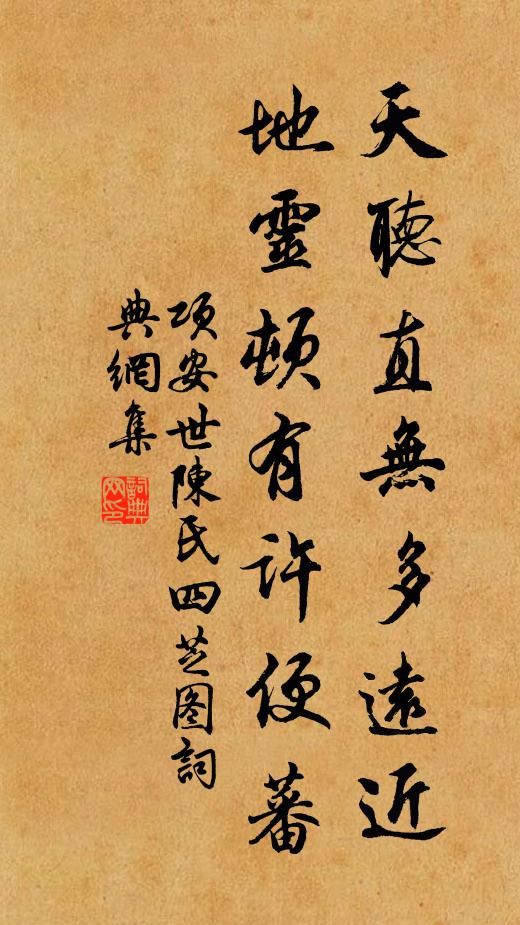 天聽直無多遠近
地靈頓有許便蕃
項安世陳氏四芝图詞
典網集
詞典
网印